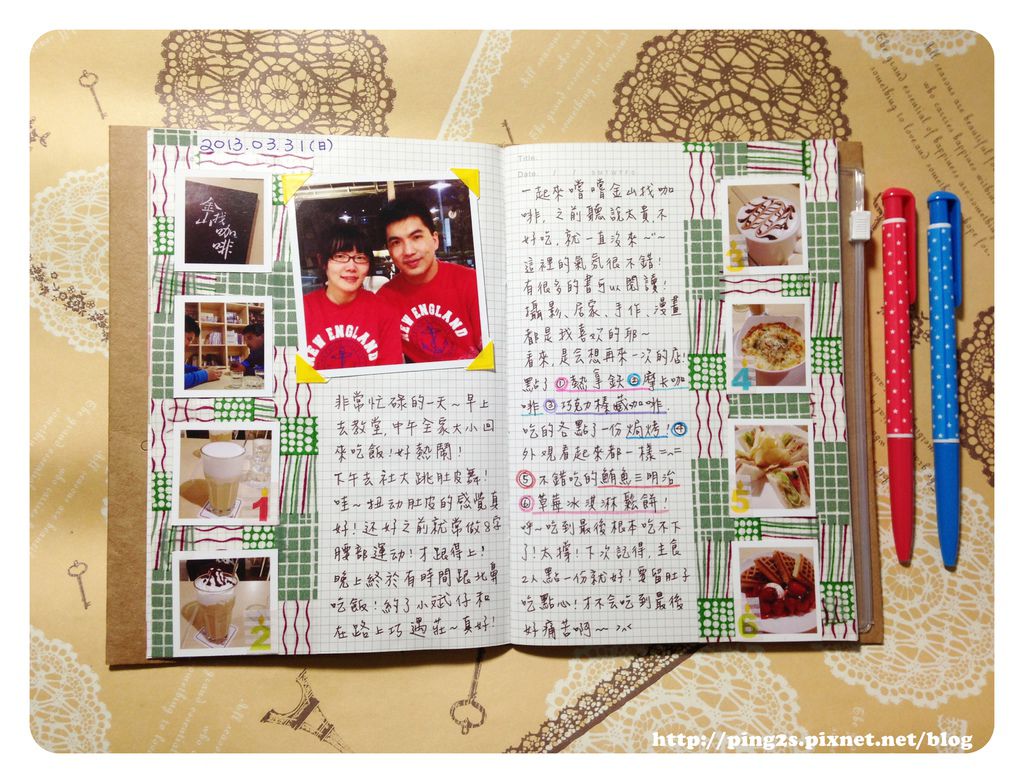 2013.03.31(日)
金山找咖啡
NEW ENGLAND
NEW ENGLAND
非常忙碌的一天~早上
去教堂,中午全家大小回
來吃飯!好熱鬧!
下午去社大跳肚皮舞!
哇~扭動肚皮的感覺真
好!還好之前就常做8字
腰部運動!才跟得上!
晚上終於有時間跟北鼻
吃飯!約了小斌仔和
在路上巧遇莊~真好!
1
2
Title.
Date.
一起來嚐嚐金山找咖
啡,之前聽說太貴不
好吃,就一直沒來~~
這裡的氣氛很不錯!
有很多的書可以閱讀!
攝影、居家、手作、漫畫
都是我喜歡的耶~
看來,是会想再來一次的店!
點了①熱拿鐵②摩卡咖
啡③巧克力榛藏咖啡.
吃的各點了一份焗烤!④
外觀看起來都一樣=^=
⑤不錯吃的鮪魚三明治
⑥草莓冰淇淋鬆餅!
呼~吃到最後根本吃不下
了!太撐!下次記得,主食
2人點一份就好!要留肚子
吃點心!才不会吃到最後
好痛苦啊~~ >^<
3
4
5
6
http://ping2s.pixnet.net/blog